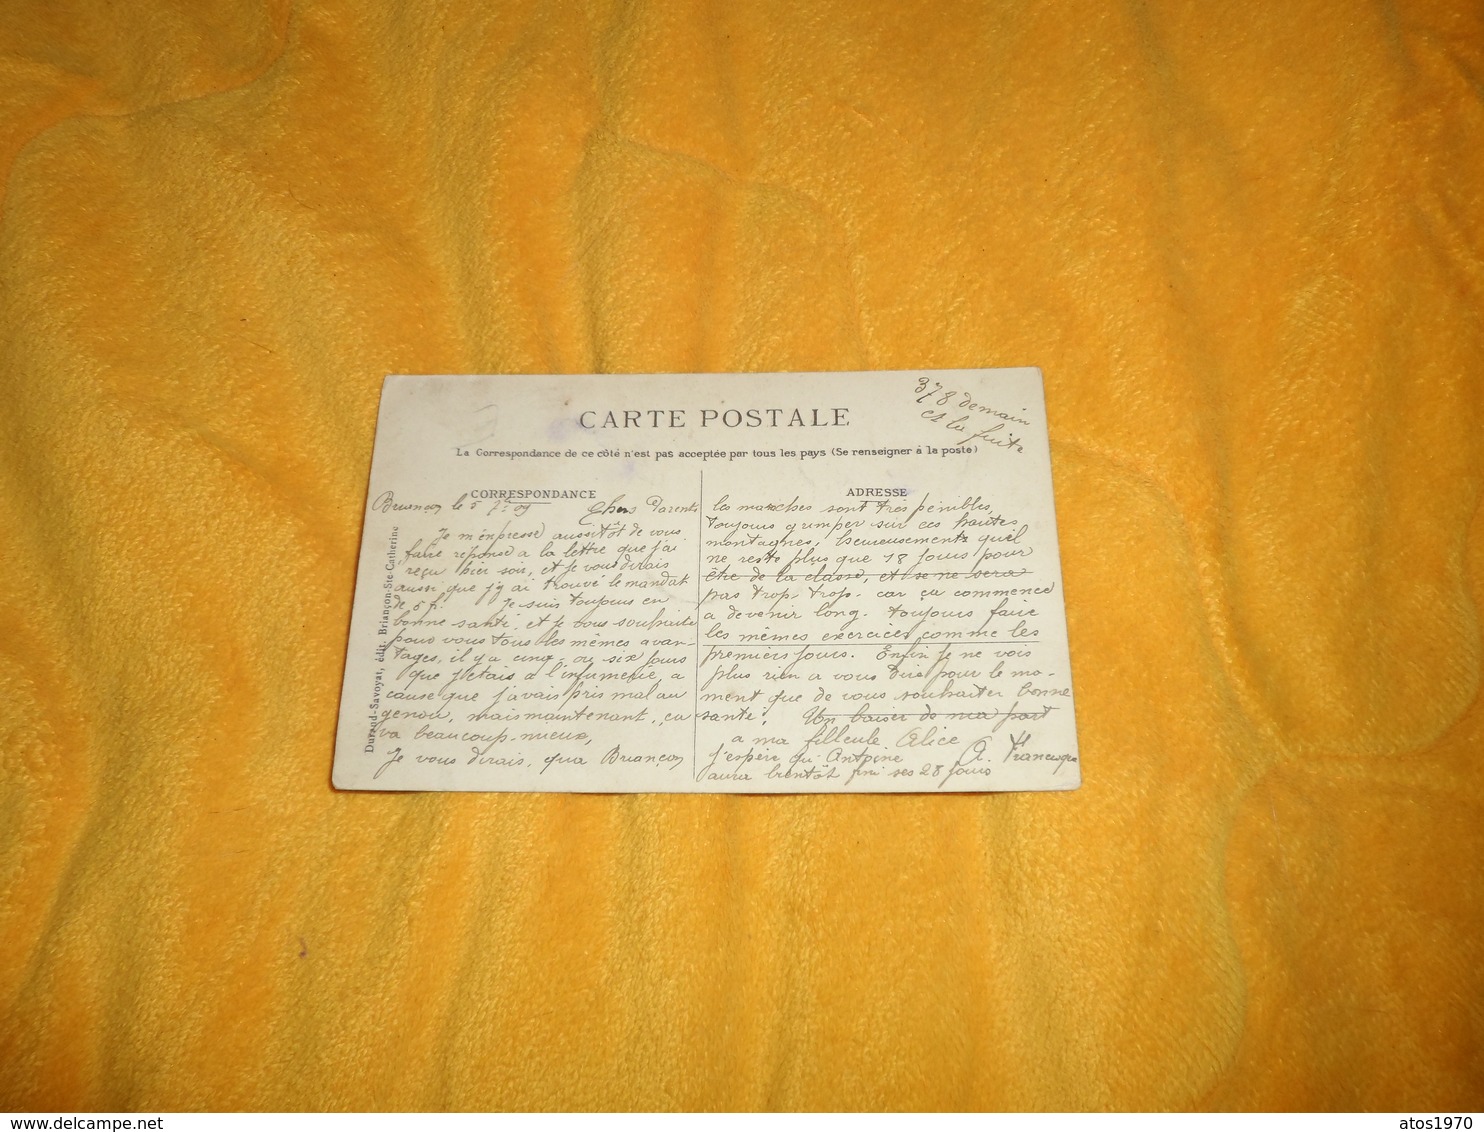 378 demain
et la fuite
CARTE POSTALE
La Correspondance de ce côté n'est pas acceptée par tous les pays (Se renseigner à la poste)
CORRESPONDANCE
Briançon le 5 7re 09 Chers Parents
Je m'énpresse aussitôt de vous
faire reponse a la lettre que j'ai
reçu hier soir, et je vous dirais
aussi que j'y ai trouvé le mandat
de 5 f. Je suis toujours en
bonne santé, et je vous souhaite
pour vous tous les mêmes avan-
tages, il y a cinq, ou six jours
que j'etais a l'infirmerie, a
cause que j'avais pris mal au
genou, mais maintenant, ça
va beaucoup mieux,
Je vous dirais, qua Briançon
Durand-Savoyat, édit. Briançon-Ste-Catherine
ADRESSE
les marches sont très pénibles,
toujours grimper sur ces hautes
montagnes, heureusement quél
ne reste plus que 18 jours pour
être de la classe, et se ne sera
pas trop, trop. car ça commence
a devenir long. toujours faire
les mêmes exercices comme les
premiers jours. Enfin je ne vois
plus rien a vous dire pour le mo-
ment que de vous souhaiter bonne
santé, Un baiser de ma part
a ma filleule Alice
j'espère qu'Antoine A.
aura bientôt fini ses 28 jours
atos1970